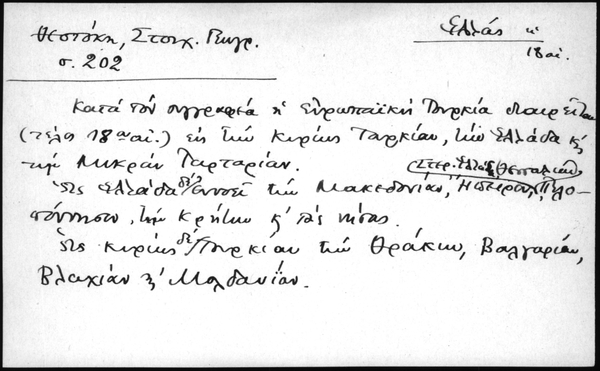 Θεοτόκη, Στοιχ. Γεωγρ.
σ. 202
Ελλάς
18 αι.
Κατά τον συγγραφέα η ευρωπαϊκή Τουρκία διαιρείται
(τέλος 18ου αι.) εις την κυρίως Τουρκίαν, την Ελλάδα κ'
την Μικράν Ταρταρίαν.
(Στερ. Ελλάδα, Θεσσαλίαν)
Ως Ελλάδα δε εννοεί την Μακεδονίαν, Ήπειρον, Πελο-
πόννησον, την Κρήτην κ' τας νήσους.
Ως κυρίως δε Τουρκίαν την Θράκην, Βουλγαρίαν,
Βλαχίαν κ' Μολδαυΐαν.